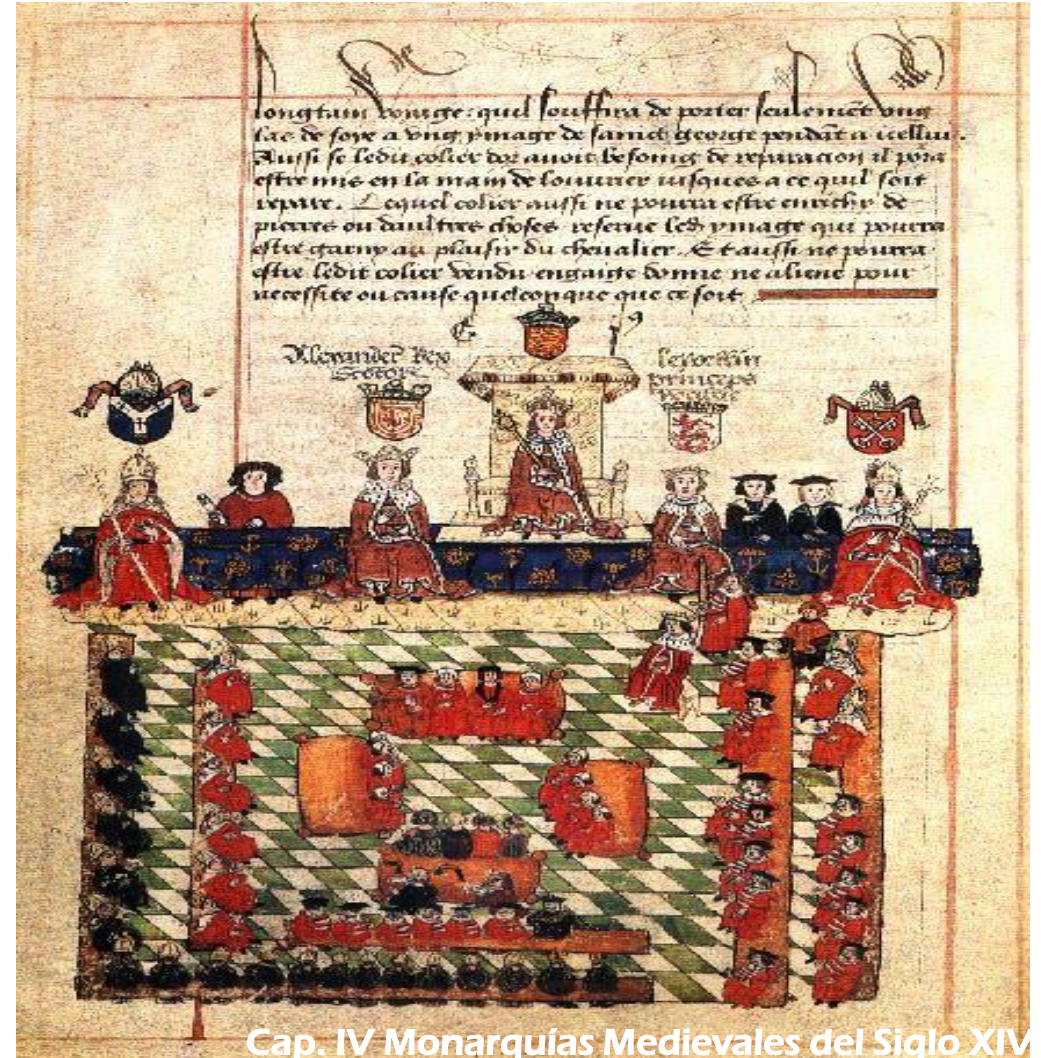 longtain voyage: quil souffira de porter seulement vng
las de soye a vng ymage de sainct george pendāt a icelluy.
Aussi se ledit colier dor auoit besoing de reparacion il pora
estre mis en la main de louurier iusques a ce quil soit
repare. Lequel colier aussi ne pourra estre enrichy de
pierres ou daultres choses reserue led ymage qui pourra
estre garny au plaisir du cheualier. Et aussi ne pourra
estre ledit colier vendu engaige donne ne aliene pour
necessite ou cause quelconque que ce soit
Alexander Rex
princeps
Cap. IV Monarquías Medievales del Siglo XIV